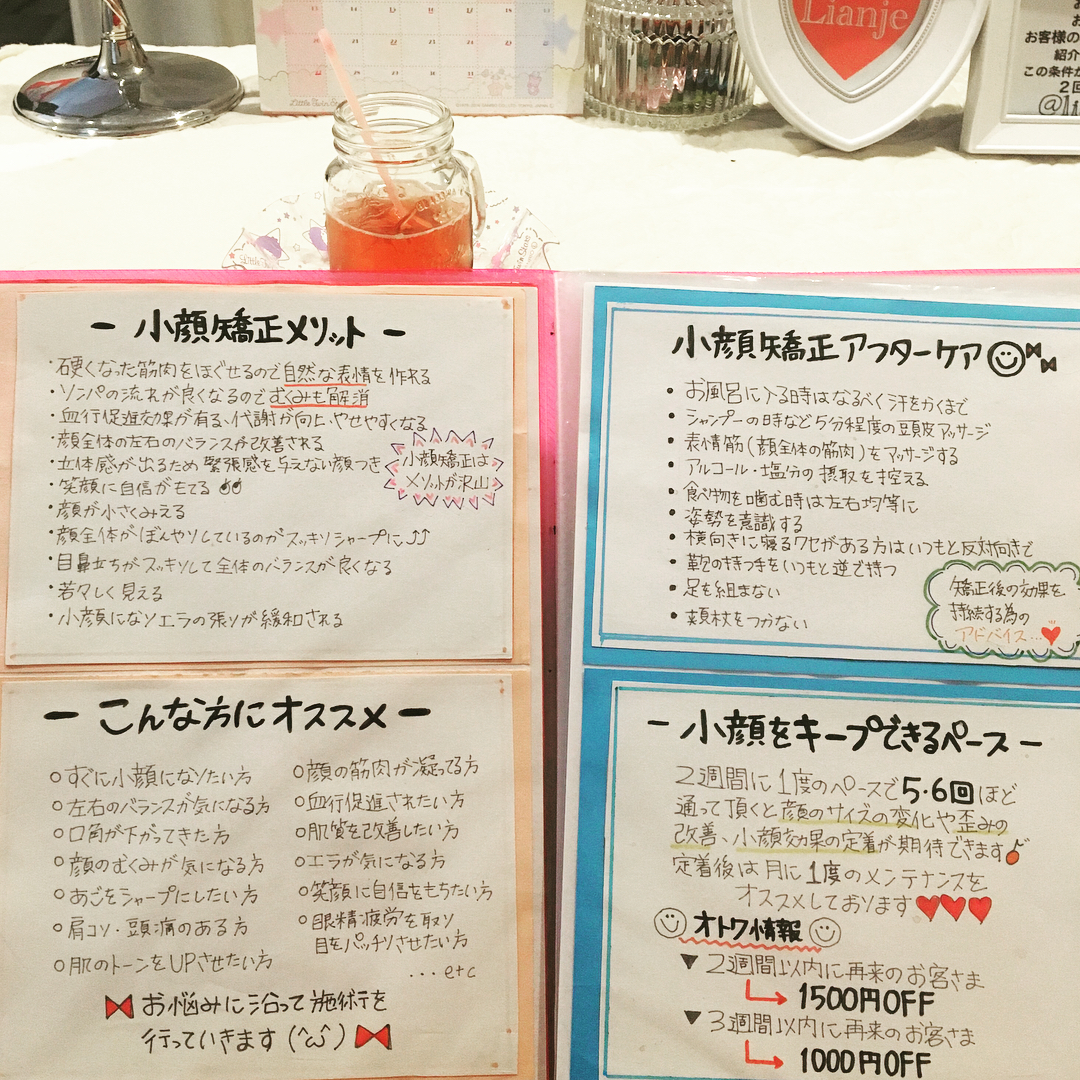 Lianje
お客様の
紹介
この条件が
2回
Little Twin Stars
- 小顔矯正メリット -
・硬くなった筋肉をほぐせるので自然な表情を作れる
・ソンパの流れが良くなるのでむくみも解消
・血行促進効果が有る、代謝が向上、やせやすくなる
・顔全体の左右のバランスが改善される
・立体感が出るため緊張感を与えない顔つき
・笑顔に自信がもてる
・顔が小さくみえる
・顔全体がぼんやりしているのがスッキリシャープに
・目鼻立ちがスッキリして全体のバランスが良くなる
・若々しく見える
・小顔になりエラの張りが緩和される
小顔矯正は
メリットが沢山
- こんな方にオススメ -
○すぐに小顔になりたい方
○左右のバランスが気になる方
○口角が下がってきた方
○顔のむくみが気になる方
○あごをシャープにしたい方
○肩コリ・頭痛のある方
○肌のトーンをUPさせたい方
○顔の筋肉が凝ってる方
○血行促進されたい方
○肌質を改善したい方
○エラが気になる方
○笑顔に自信をもちたい方
○眼精疲労を取り
目をパッチリさせたい方
...etc
お悩みに沿って施術を
行っていきます(^ω^)
小顔矯正アフターケア
・お風呂に入る時はなるべく汗をかくまで
・シャンプーの時など5分程度の頭皮マッサージ
・表情筋(顔全体の筋肉)をマッサージする
・アルコール・塩分の摂取を控える
・食べ物を噛む時は左右均等に
・姿勢を意識する
・横向きに寝るクセがある方はいつもと反対向きで
・鞄の持つ手をいつもと逆で持つ
・足を組まない
・頬杖をつかない
矯正後の効果を
持続する為の
アドバイス...
- 小顔をキープできるペース -
2週間に1度のペースで5・6回ほど
通って頂くと顔のサイズの変化や歪みの
改善、小顔効果の定着が期待できます
定着後は月に1度のメンテナンスを
オススメしております
オトク情報
▼2週間以内に再来のお客さま
1500円OFF
▼3週間以内に再来のお客さま
1000円OFF